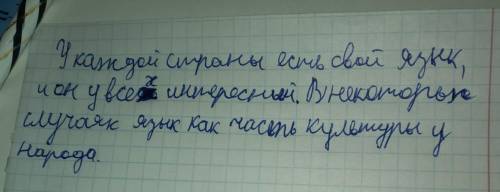 У каждой страны есть свой язык,
и он у всех интересный. В некоторых
случаях язык как часть культуры у
народа.